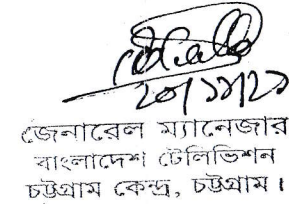 ২০/১১/২১
জেনারেল ম্যানেজার
বাংলাদেশ টেলিভিশন
চট্টগ্রাম কেন্দ্র, চট্টগ্রাম।